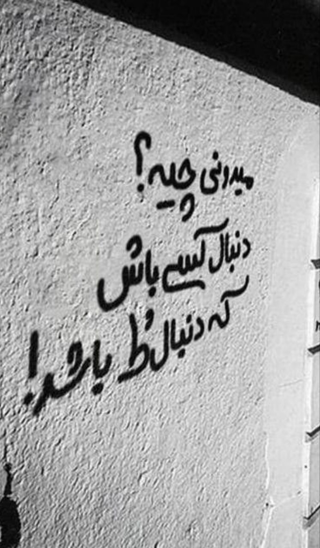 میدونی چیه؟
دنبال کسی باش
که دنبال طُ باشد!